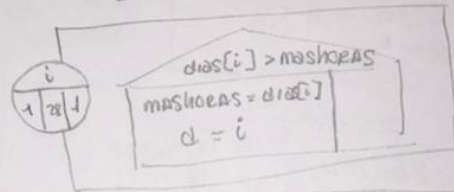 i
1 28 1
dias[i] > mashoras
mashoras = dias[i]
d = i